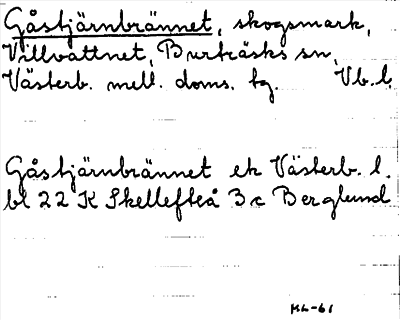 Gåstjärnbrännet, skogsmark,
Villvattnet, Burträsks sn,
Västerb. mell. doms. tg. Vb.l.
Gåstjärnbrännet ek Västerb. l.
bl 22 K Skellefteå 3 c Berglund
KL-61